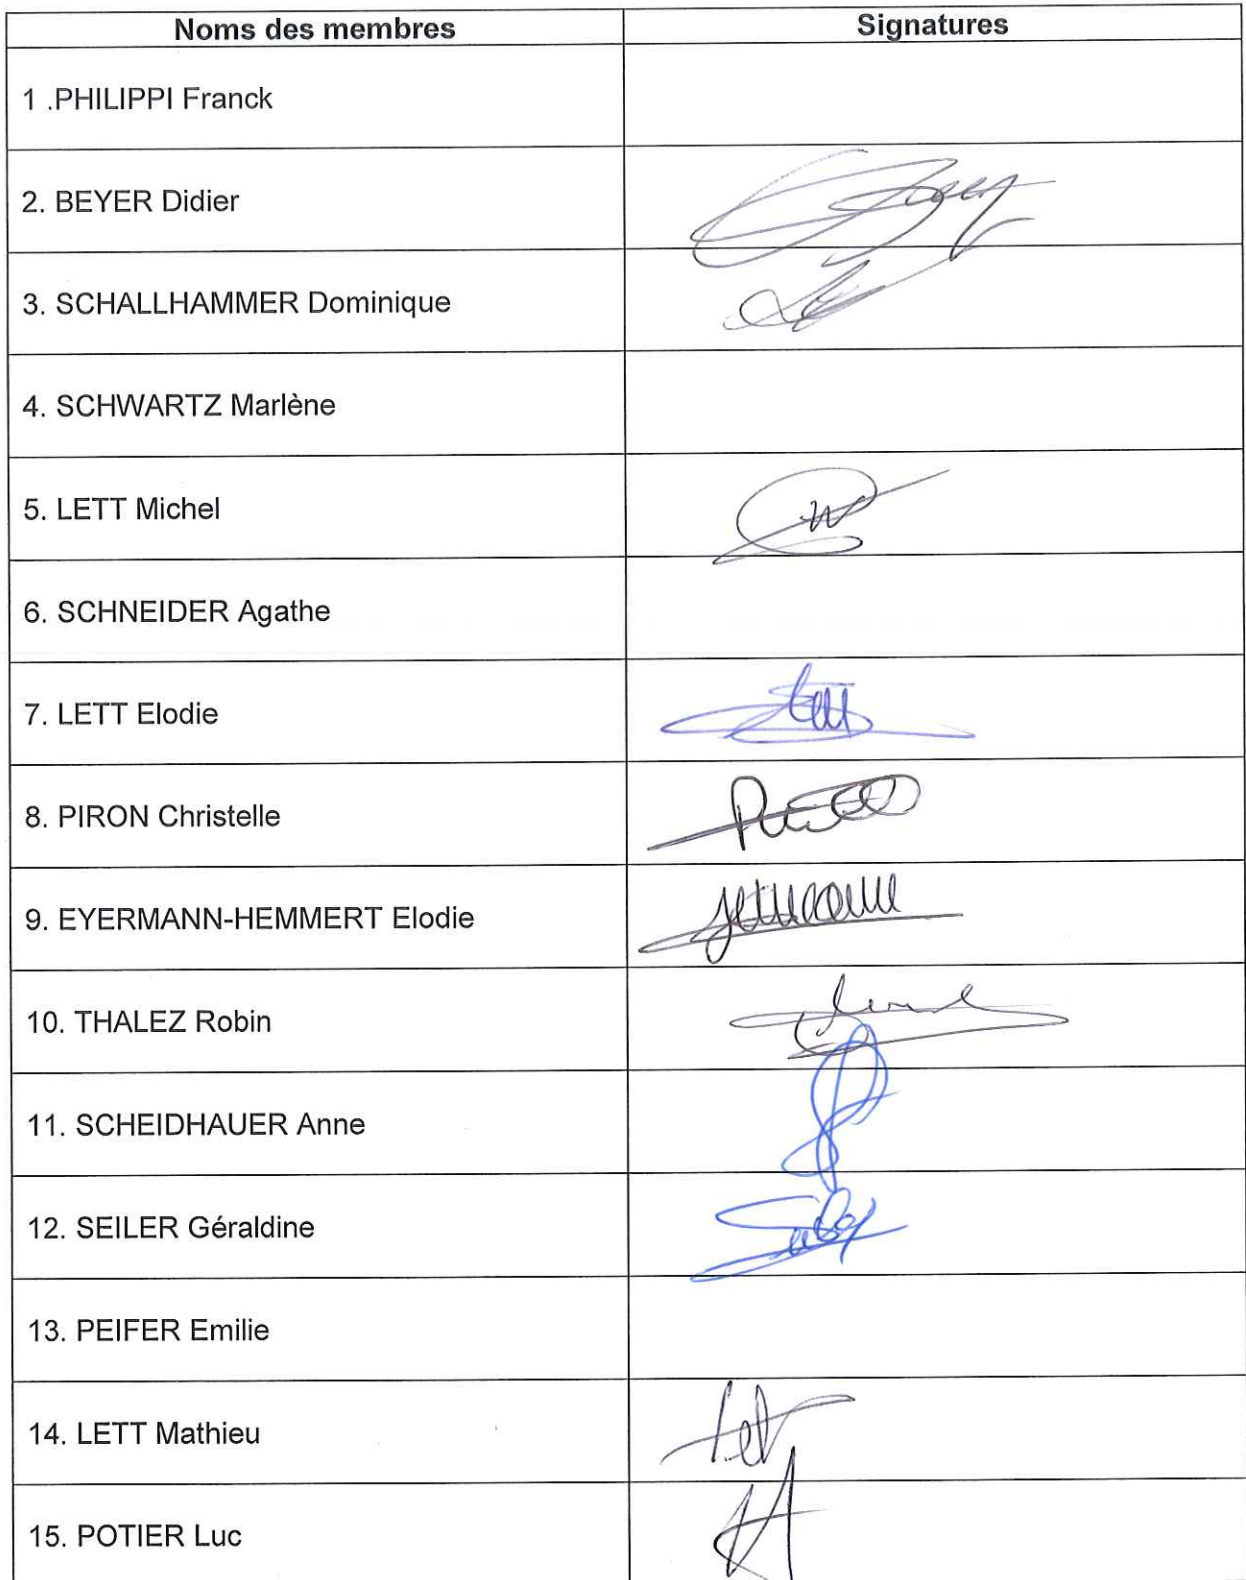 Noms des membres Signatures
1 .PHILIPPI Franck
2. BEYER Didier
3. SCHALLHAMMER Dominique
4. SCHWARTZ Marlène
5. LETT Michel
6. SCHNEIDER Agathe
7. LETT Elodie
8. PIRON Christelle
9. EYERMANN-HEMMERT Elodie
10. THALEZ Robin
11. SCHEIDHAUER Anne
12. SEILER Géraldine
13. PEIFER Emilie
14. LETT Mathieu
15. POTIER Luc